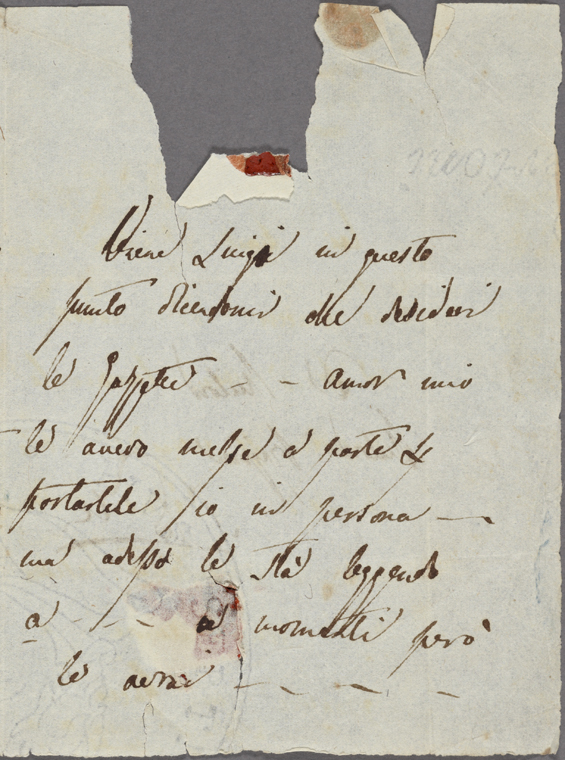 Viene Luigi in questo
punto dicendomi che desideri
le Gazzette - - amor mio
le avevo messe a parte
portartele io in persona —
ma adesso le stà leggendo
a - - - a momenti però
le avrai - - - - -